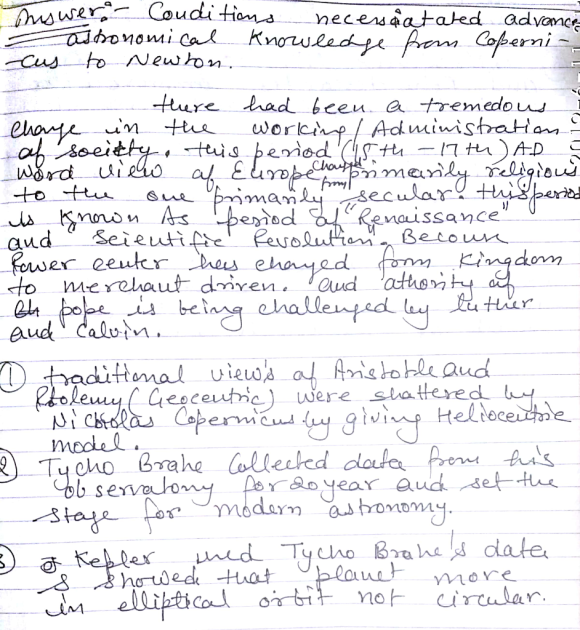 Answer:- Conditions necessatated advance
astronomical Knowledge from Coperni-
-cus to Newton.
there had been a tremedous
change in the working/Administration
of society. this period (15th - 17th) AD
word view of Europe changed from primarily religious
to the one primarily secular. this period
is known As period of "Renaissance"
and Scientific Revolution". Becoun
Power center has changed form Kingdom
to merchant driven. and 'athority of
pope is being challenged by luther
and Calvin.
① traditional view's of Aristotle and
Ptolemy (Geocentric) were shattered by
Nicholas Copernicus by giving Heliocentric
model.
2 Tycho Brahe Collected data from his
observatony for 20 year and set the
stage for modern astronomy.
3 Kepler used Tycho Brahe's data
& showed that planet more
in elliptical orbit not circular.